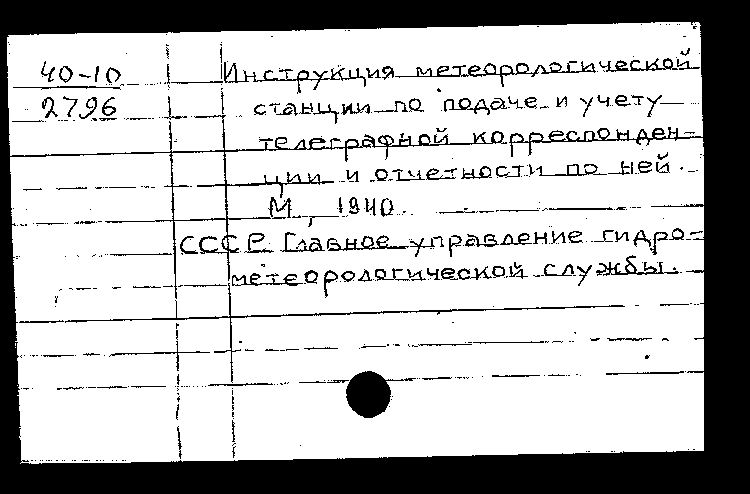 40-10
2796
Инструкция метеорологической
станции по подаче и учету
телеграфной корреспонден-
ции и отчетности по ней.
М, 1940.
СССР. Главное управление гидро-
метеорологической службы.